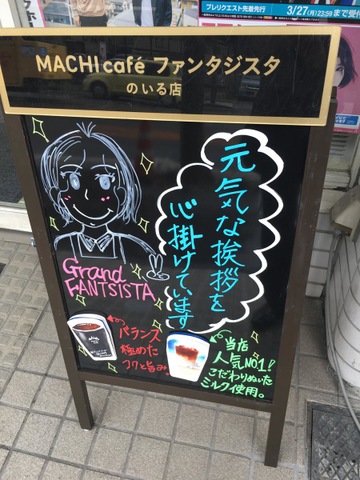 プレリクエスト先着先行
3/27(月)23:59まで受付
MACHI café ファンタジスタ
のいる店
元気な挨拶を
心掛けています
Grand
FANTSISTA
バランス
極めた
コクと旨み
当店
人気NO.1!
こだわりぬいた
ミルク使用。